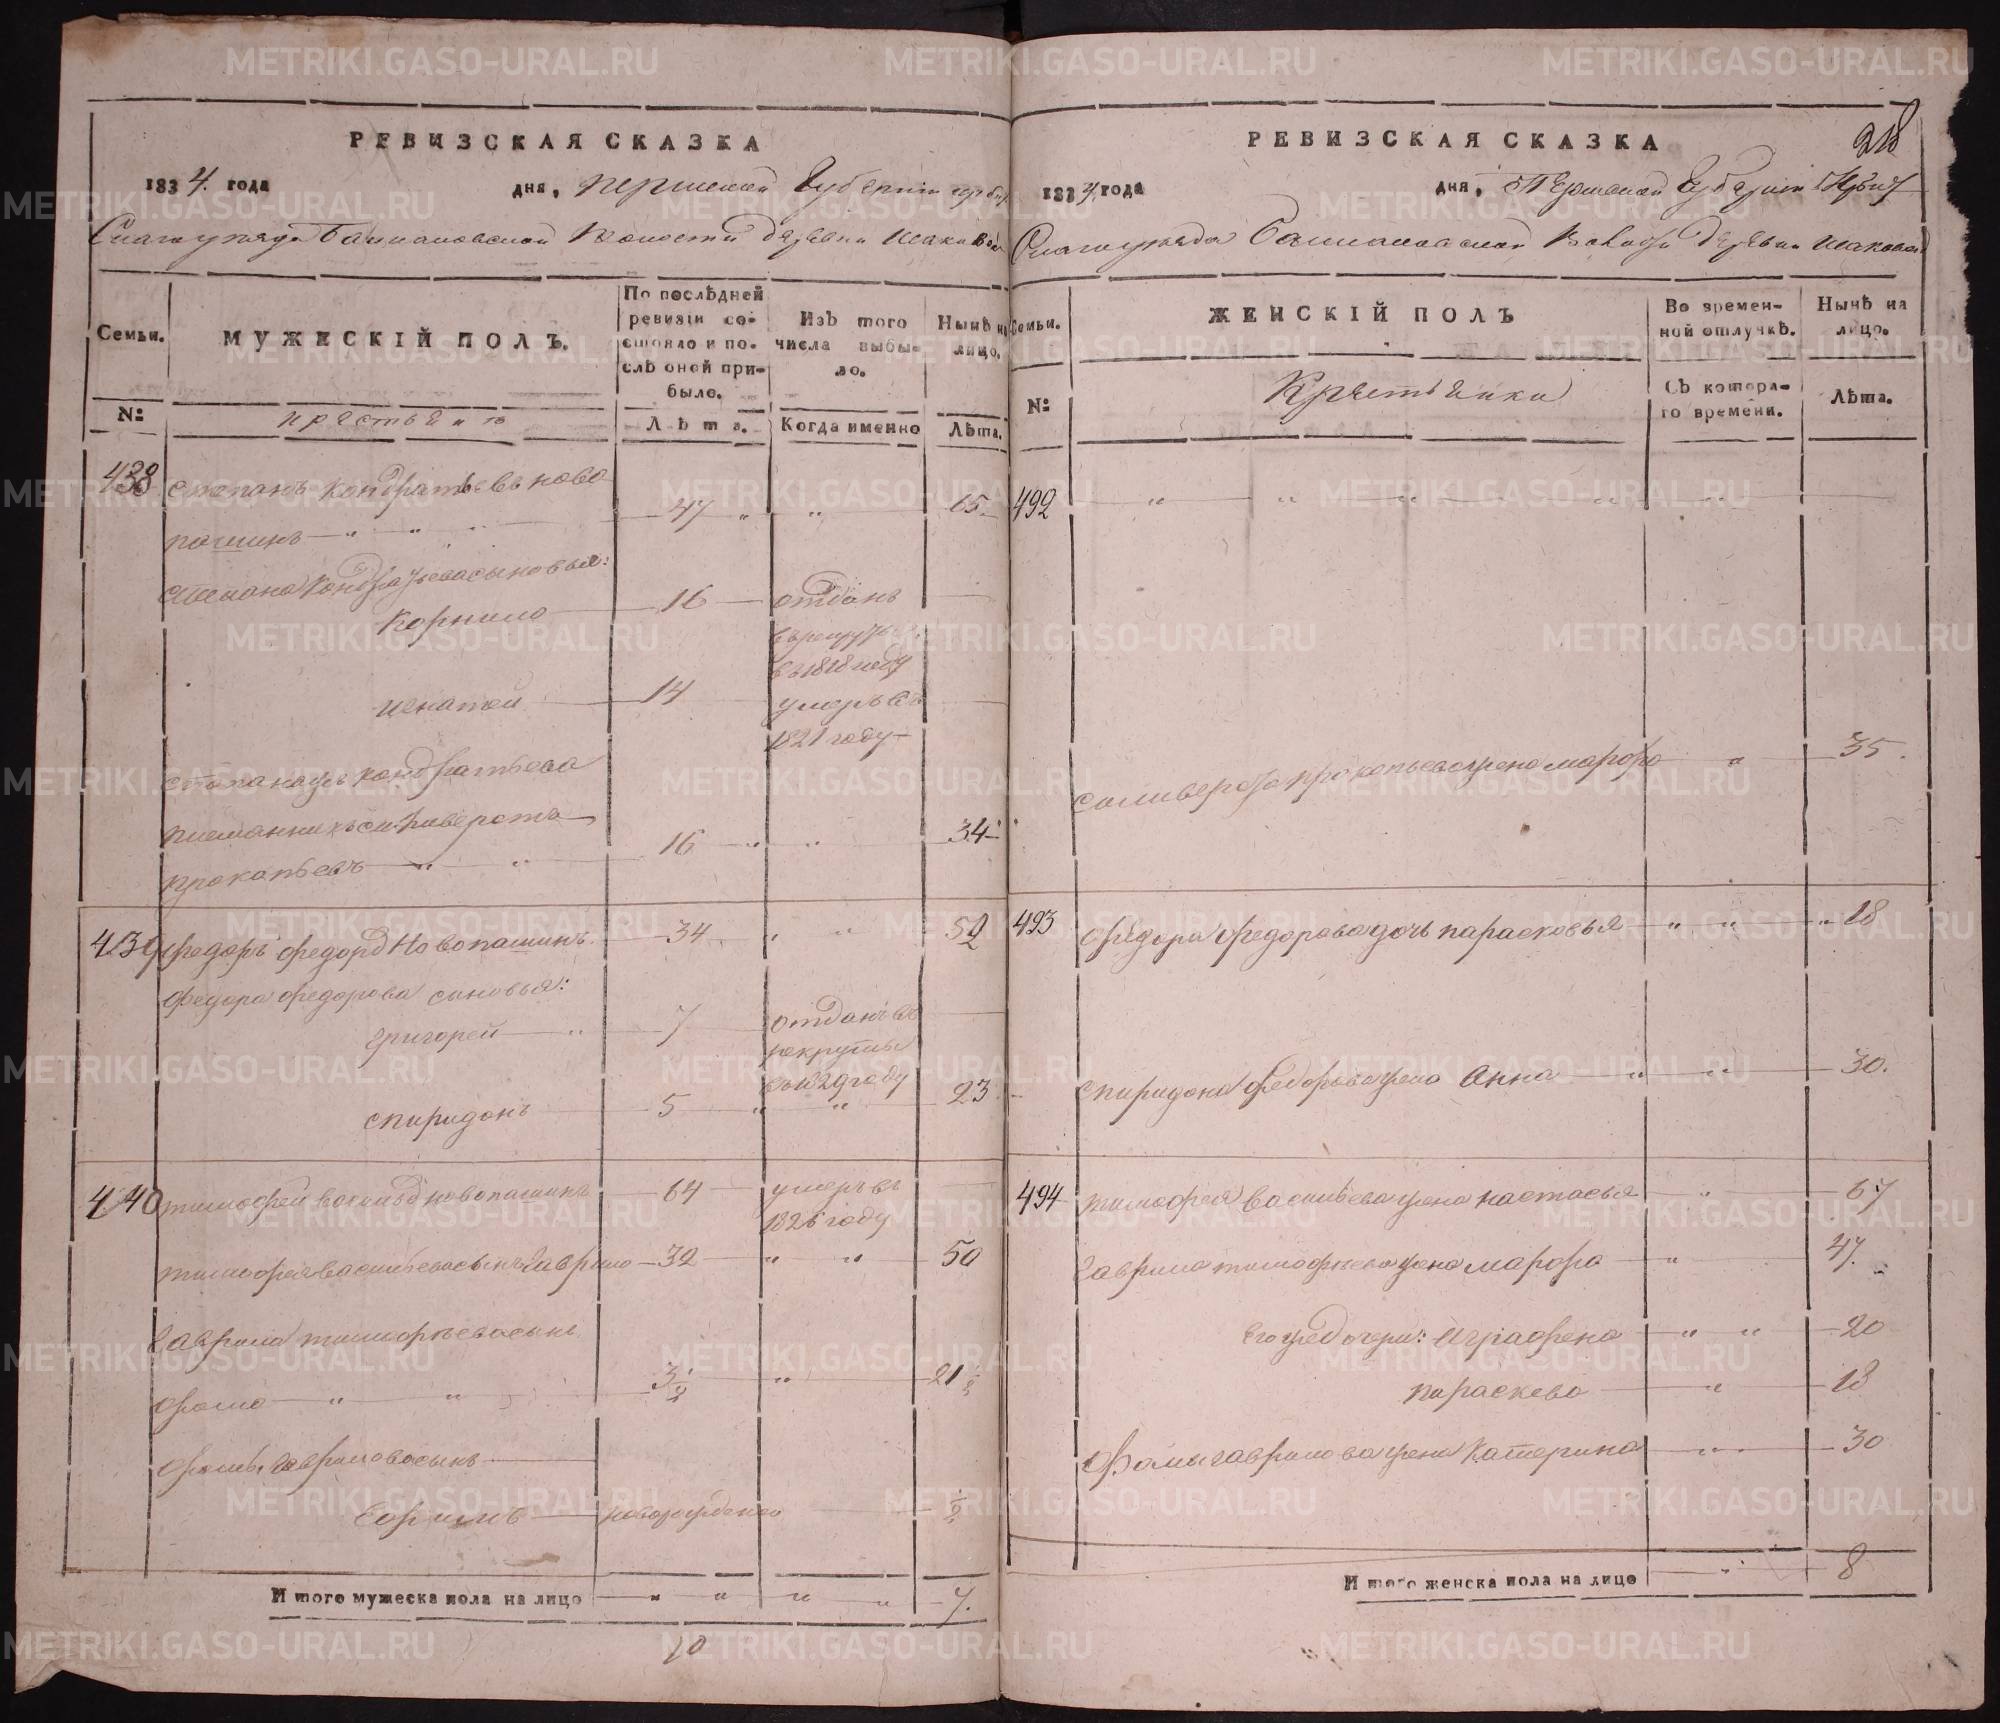 РЕВИЗСКАЯ СКАЗКА
1834. года дня, пермской Губернии
Башмаковской Волости деревни
Семьи.
МУЖЕСКІЙ ПОЛЪ.
По послѣдней ревизіи состояло и послѣ оной прибыло.
Изъ того числа выбыло.
Нынѣ на лицо.
№
крестьянъ
Лѣта.
Когда именно
Лѣта.
438 степанъ кондратьевъ ново
пашинъ 47 65
степана Кондратьева сыновья:
корнило 16 отданъ
въ рекруты
въ 1818 году
игнатей 14 умеръ въ
1821 году
степана кондратьева
племянникъ силиверстъ
прокапьевъ 16 34
439 федоръ федоровъ Новопашинъ 34 52
федора федорова сыновья:
григорей 7 отданъ въ
рекруты
въ 1829 году
спиридонъ 5 23
440 тимофей васильевъ новопашинъ 64 умеръ въ
1826 году
тимофея васильева сынъ гаврило 32 50
гаврила тимофеева сынъ
фома 3 1/2 21 1/2
фомы гаврилова сынъ
Ефимъ новорожденной 1/2
Итого мужеска пола на лицо 7.
10
218
РЕВИЗСКАЯ СКАЗКА
1834 года дня, Пермской Губерніи
Башмаковской Волости деревни
Семьи.
ЖЕНСКІЙ ПОЛЪ
Во временной отлучкѣ.
Нынѣ на лицо.
№
Крестьянки
Съ котораго времени.
Лѣта.
492
силиверста прокопьева жена марфа 35.
493 федора федорова дочь парасковья 18
спиридона федорова жена Анна 30.
494 тимофея васильева жена настасья 67
гаврила тимофеева жена марфа 47.
его же дочери: Аграфена 20
параскева 18
Фомы гаврилова жена Катерина 30
Итого женска пола на лицо 8
METRIKI.GASO-URAL.RU